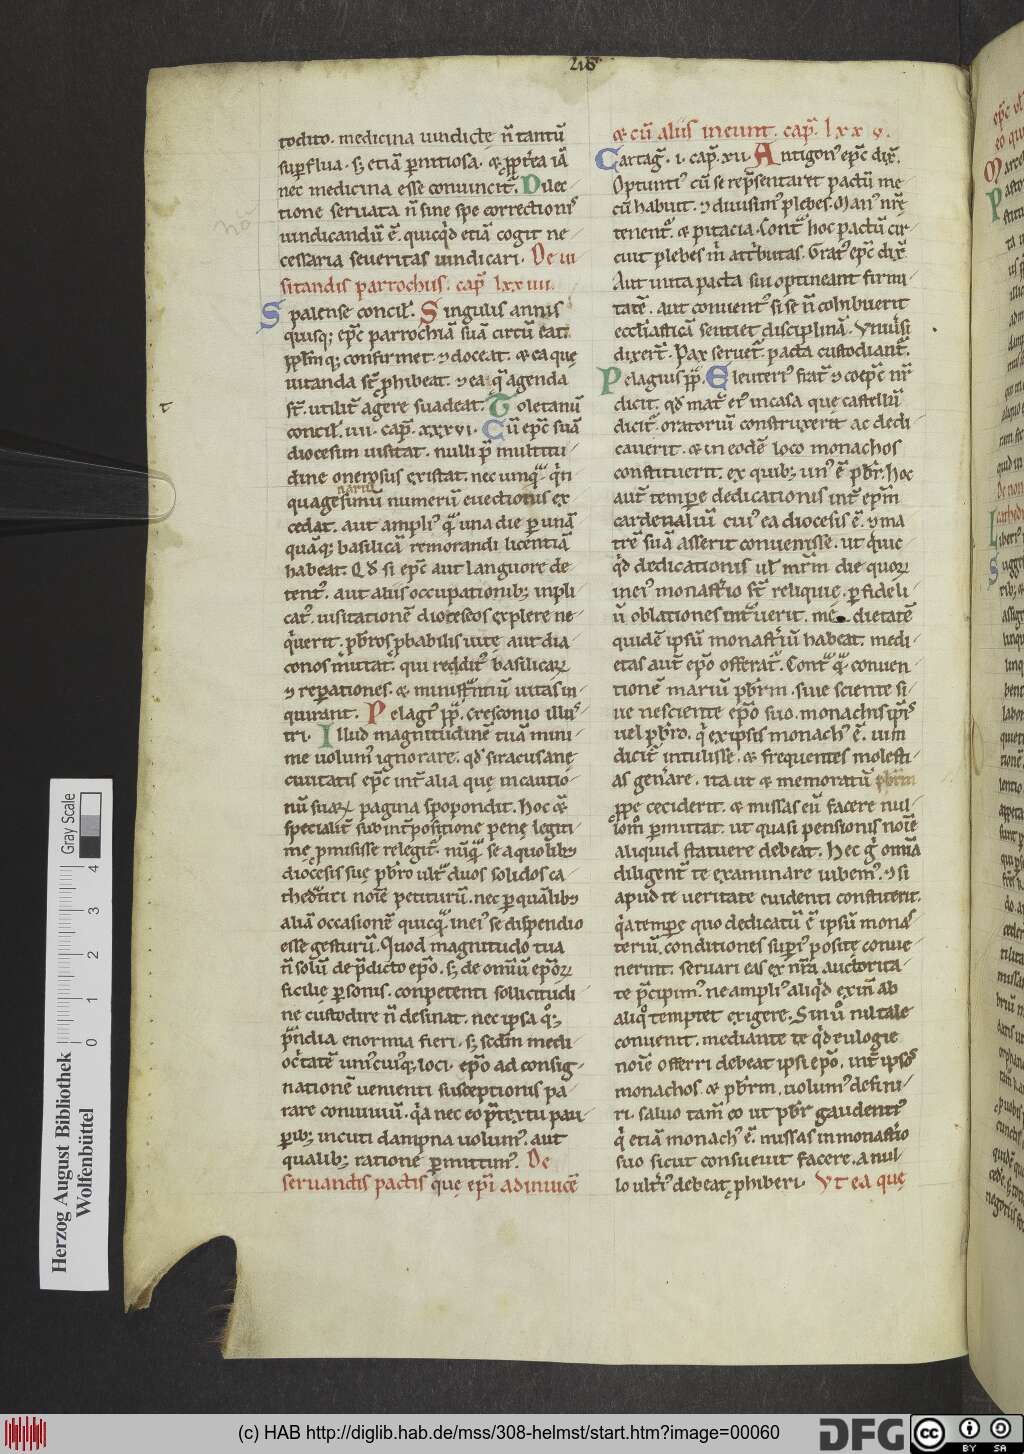 todito. medicina uindicte n̄ tantū
suꝑflua. s; etiā ꝑnitiosa. & ꝓpt̄ea iā
nec medicina esse conuincit̄. Dilec-
tione seruata n̄ sine spe correctionis
uindicandū ē. quicq̇d etiā cogit ne-
cessaria seueritas uindicari. De ui
sitandis parrochiis. cap̄ lxxiiii.
Spalense concil̄. Singulis annis
quisq; ep̄c parrochiā suā circū eat.
confirmet. ⁊ doceat. & ea quę
uitanda st̄ ꝓhibeat. ⁊ ea q̄ agenda
st̄. utilit̄ agere suadeat. Toletanū
concil̄. iiii. cap̄. xxxvi. Cū ep̄c suā
diocesim uisitat. nulli p̄ multitu-
dine onerosus existat. nec umq̄. q̇n
quagenariū numerū euectionis ex-
cedat. aut ampli' q̄ una die ꝑ unā
quāq; basilicā remorandi licentiā
habeat. Qd̄ si ep̄c aut languore de-
tent'. aut aliis occupationib; inpli
cat'. uisitationē dioceseos explere ne-
q̇uerit. pb̄ros ꝓbabilis uitę. aut dia-
conos mittat. qui redditus basilicaꝝ
⁊ reparationes. & ministrantiū uitas in-
quirant. Pelag' pp̄. cresconio illus
tri. Illud magnitudinē tuā mini-
me uolum' ignorare. qd̄ siracusanę
ciuitatis ep̄c int̄ alia quę in cautio-
nū suaꝝ pagina spopondit. hoc &
specialit̄ sub int̄positione penę legiti-
mę ꝓmisisse relegit̄. nūq̄ se a quolib;
diocesis suę pb̄ro ult̄ duos solidos ca-
thedratici noīe petiturū. nec ꝑ quālib;
aliā occasionē quicq̄ in ei' se dispendio
esse gesturū. Quod magnitudo tua
n̄ solū de p̄dicto ep̄o. s; de omiū ep̄oꝝ
sicilię ꝑsonis. conpetenti sollicitudi-
ne custodire n̄ desinat. nec ipsa q̊;
prandia enormia fieri. s; scdm medi-
ocritatē uni'cui'q; loci. ep̄o ad consig-
nationē uenienti susceptionis pa-
rare conuiuiū. q̇a nec eo p̄textu pau-
ꝑib; incuti dampna uolum'. aut
qualib; ratione ꝑmittim'. De
seruandis pactis quę ep̄i adinuicē
& cū aliis ineunt. cap̄. lxxv.
Cartag̃. i. cap̄. xii. Antigon' ep̄c dix̄.
Optunti' cū se rep̄sentaret pactū me-
cū habuit. ⁊ diuisim' plebes. Man' nr̄ę
tenent̄. & pitacia. Cont̄ hoc pactū cir-
cuit plebes m̄ attributas. Grat' ep̄c dix̄.
Aut iuxta pacta sui optineant firmi-
tatē. aut conuent' si se n̄ cohibuerit
eccl̄iasticā sentiet disciplinā. Vniūsi
dixert̄. Pax seruet̄. pacta custodiant̄.
Pelagius pp̄. Eleuteri' frat̄ ⁊ coep̄c nr̄
dicit. qd̄ mat̄ ei' in casa que castellū
dicit̄. oratoriū construxerit ac dedi-
cauerit. & in eodē loco monachos
constituerit. ex quib; un' ē pb̄r. hoc
aut̄ tempore dedicationis int̄ ep̄m
cardenaliū cui' ea diocesis ē. ⁊ ma
trē suā asserit conuenisse. ut q̇uic-
q̇d dedicationis ul̄ mr̄m die quoꝝ
in ei' monast̄io st̄ reliquię. ꝑ fideli-
ū oblationes int̄uerit. me dietatē
quidē ipsū monast̄iū habeat. medi-
etas aut̄ ep̄o offerat̄. Cont̄ q̄ conuen-
tionē mariū pb̄rm. siue sciente si-
ue nesciente ep̄o suo. monachis ip̄i'
uel pb̄ro. q̇ ex ipsis monach' ē. uim
dicit̄ intulisse. & frequentes molesti-
as gen̄are. ita ut & memoratū pb̄rm
ꝓpe ceciderit. & missas eū facere nul-
lom̊ ꝑmittat. ut quasi pensionis noīe
aliquid statuere debeat. Hec ḡ omīa
diligent̄ te examinare iubem'. ⁊ si
apud te ueritate euidenti constiterit.
q̇a tempore quo dedicatū ē ipsū monas
teriū. conditiones superi' posite conue-
nerint. seruari eas ex nr̄a auctorita-
te p̄cipim'. ne ampli' aliq̇d exin̄ ab
aliq̊ temptet exigere. Sin ū nil tale
conuenit. mediante te q̇d eulogie
noīe offerri debeat ipsi ep̄o. int̄ ipsos
monachos & pb̄rm. uolum' defini-
ri. saluo tam̄ eo ut pb̄r gaudenti'
q̇ etiā monach' ē. missas in monast̄io
suo sicut consueuit facere. a nul-
lo ulteri' debeat ꝓhiberi. Vt ea quę
Herzog August Bibliothek
Wolfenbüttel
Gray Scale
0 1 2 3 4
(c) HAB http://diglib.hab.de/mss/308-helmst/start.htm?image=00060
DFG
cc BY SA